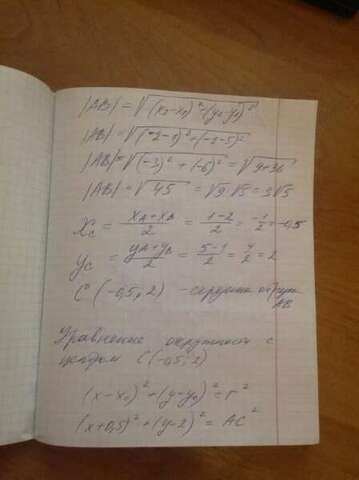 |AB| = √((x₂-x₁)²+(y₂-y₁)²)
|AB| = √((-2-1)²+(-1-5)²)
|AB| = √((-3)²+(-6)²) = √(9+36)
|AB| = √45 = √9·√5 = 3√5
x_c = (x_A+x_B)/2 = (1-2)/2 = -1/2 = -0,5
y_c = (y_A+y_B)/2 = (5-1)/2 = 4/2 = 2
C (-0,5; 2) - середина отрезка AB
Уравнение окружности с
центром C(-0,5; 2)
(x-x₀)²+(y-y₀)² = r²
(x+0,5)²+(y-2)² = AC²